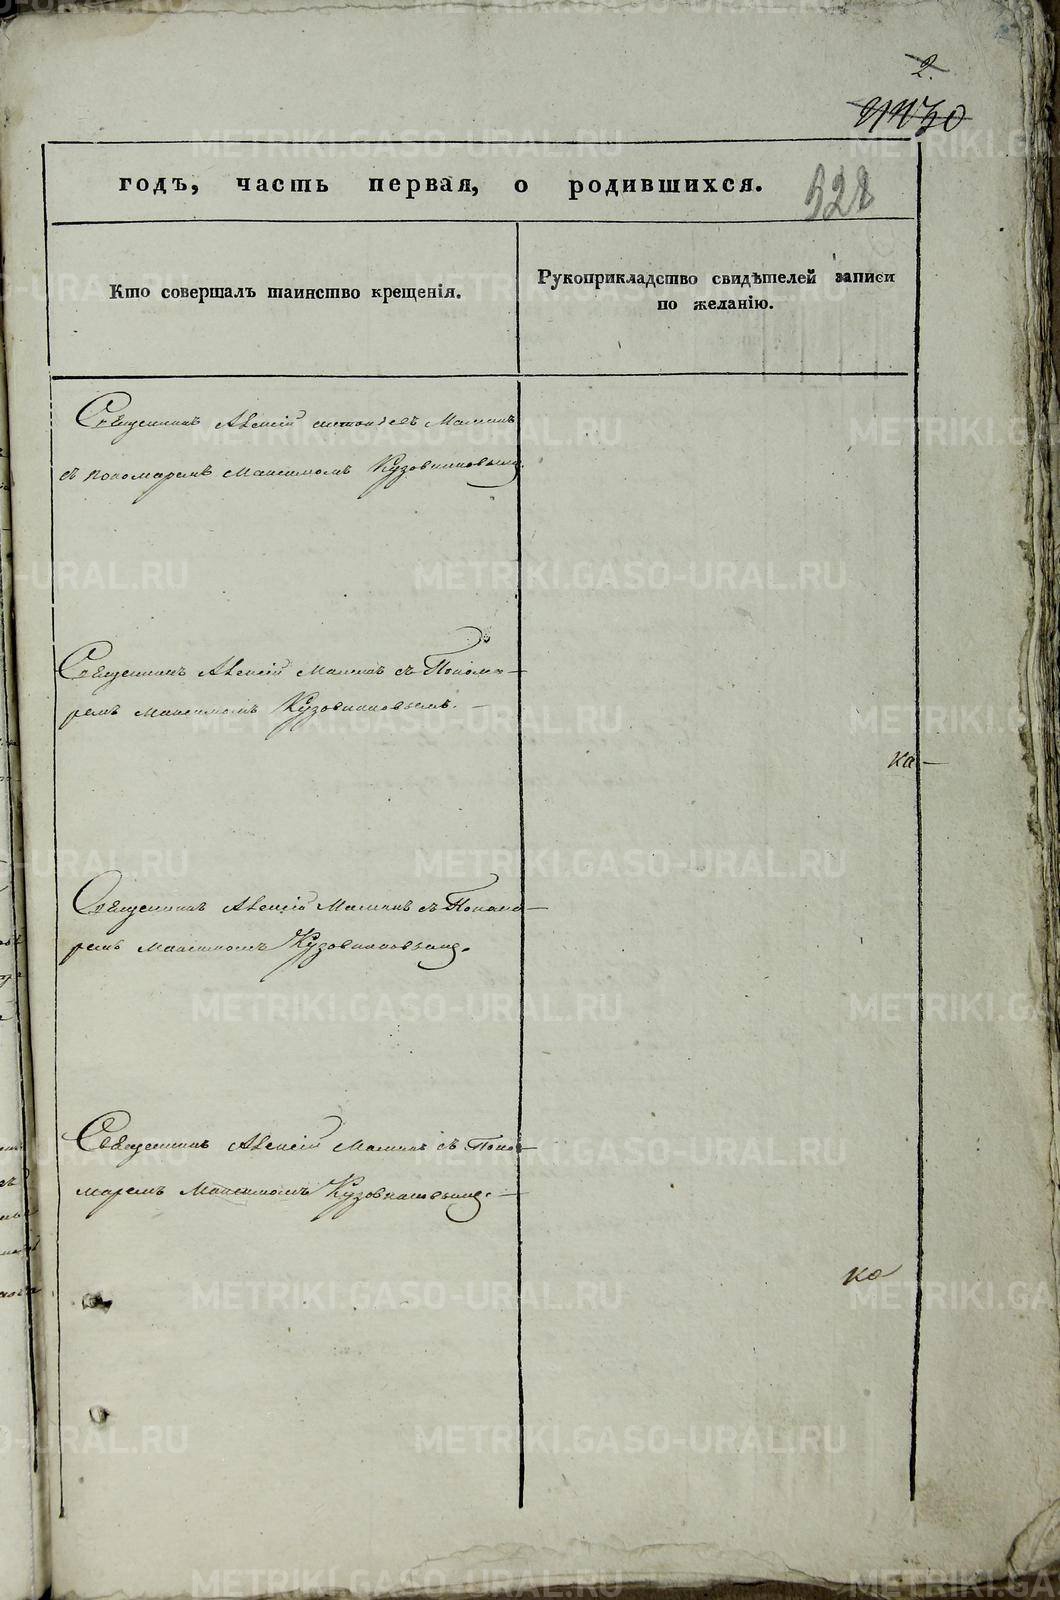 2.
годъ, часть первая, о родившихся.
528
Кто совершалъ таинство крещенія.
Рукоприкладство свидѣтелей записи
по желанію.
Священникъ Алексій Маминъ
съ пономаремъ Максимомъ Кузовниковымъ
Священникъ Алексій Маминъ съ Понома-
ремъ Максимомъ Кузовниковымъ. -
ка -
Священникъ Алексій Маминъ съ Понома-
ремъ Максимомъ Кузовниковымъ.
Священникъ Алексій Маминъ съ Поно-
маремъ Максимомъ Кузовниковымъ. -
ка
METRIKI.GASO-URAL.RU